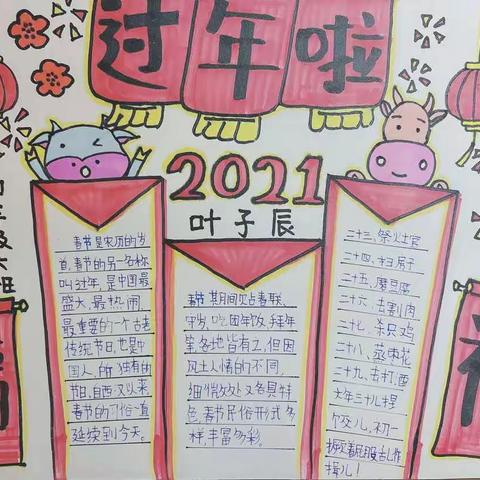 过年啦
2021
叶子辰
春节是农历的岁
首,春节的另一名称
叫过年,是中国最
盛大、最热闹、
最重要的一个古老
传统节日,也是中
国人所独有的
节日,自西汉以来
春节的习俗一直
延续到今天。
春节期间贴春联、
守岁、吃团年饭、拜年
等各地皆有之,但因
风土人情的不同,
细微处又各具特
色,春节民俗形式多
样丰富多彩。
二十三、祭灶官
二十四、扫房子
二十五、磨豆腐
二十六、去割肉
二十七、杀只鸡
二十八、蒸枣花
二十九、去打酒
大年三十儿捏
饺儿,初一
撅着屁股乱作
揖儿!